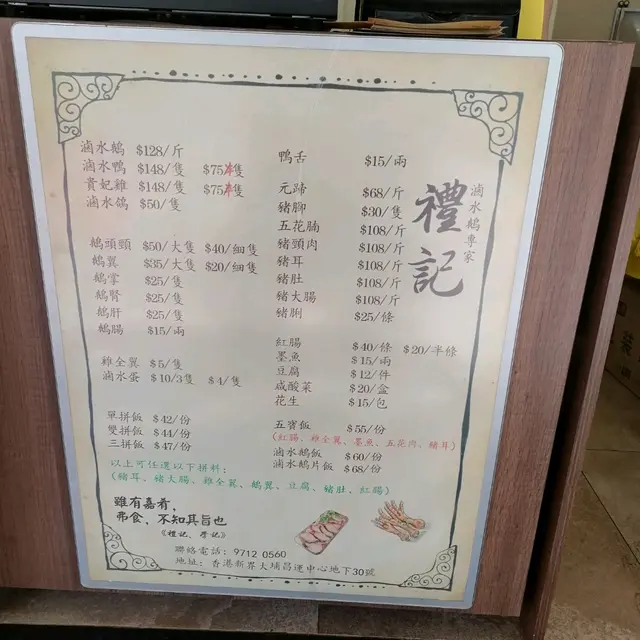 滷水鵝專家
禮記
滷水鵝 $128/斤
滷水鴨 $148/隻 $75/半隻
貴妃雞 $148/隻 $75/半隻
滷水鴿 $50/隻
鵝頭頸 $50/大隻 $40/細隻
鵝翼 $35/大隻 $20/細隻
鵝掌 $25/隻
鵝腎 $25/隻
鵝肝 $25/隻
鵝腸 $15/兩
雞全翼 $5/隻
滷水蛋 $10/3隻 $4/隻
單拼飯 $42/份
雙拼飯 $44/份
三拼飯 $47/份
以上可任選以下拼料:
(豬耳、豬大腸、雞全翼、鵝翼、豆腐、豬肚、紅腸)
雖有嘉肴,
弗食,不知其旨也
《禮記、學記》
鴨舌 $15/兩
元蹄 $68/斤
豬腳 $30/隻
五花腩 $108/斤
豬頸肉 $108/斤
豬耳 $108/斤
豬肚 $108/斤
豬大腸 $108/斤
豬脷 $25/條
紅腸 $40/條 $20/半條
墨魚 $15/兩
豆腐 $12/件
咸酸菜 $20/盒
花生 $15/包
五寶飯 $55/份
(紅腸、雞全翼、墨魚、五花肉、豬耳)
滷水鵝飯 $60/份
滷水鵝片飯 $68/份
聯絡電話: 9712 0560
地址: 香港新界大埔昌運中心地下30號